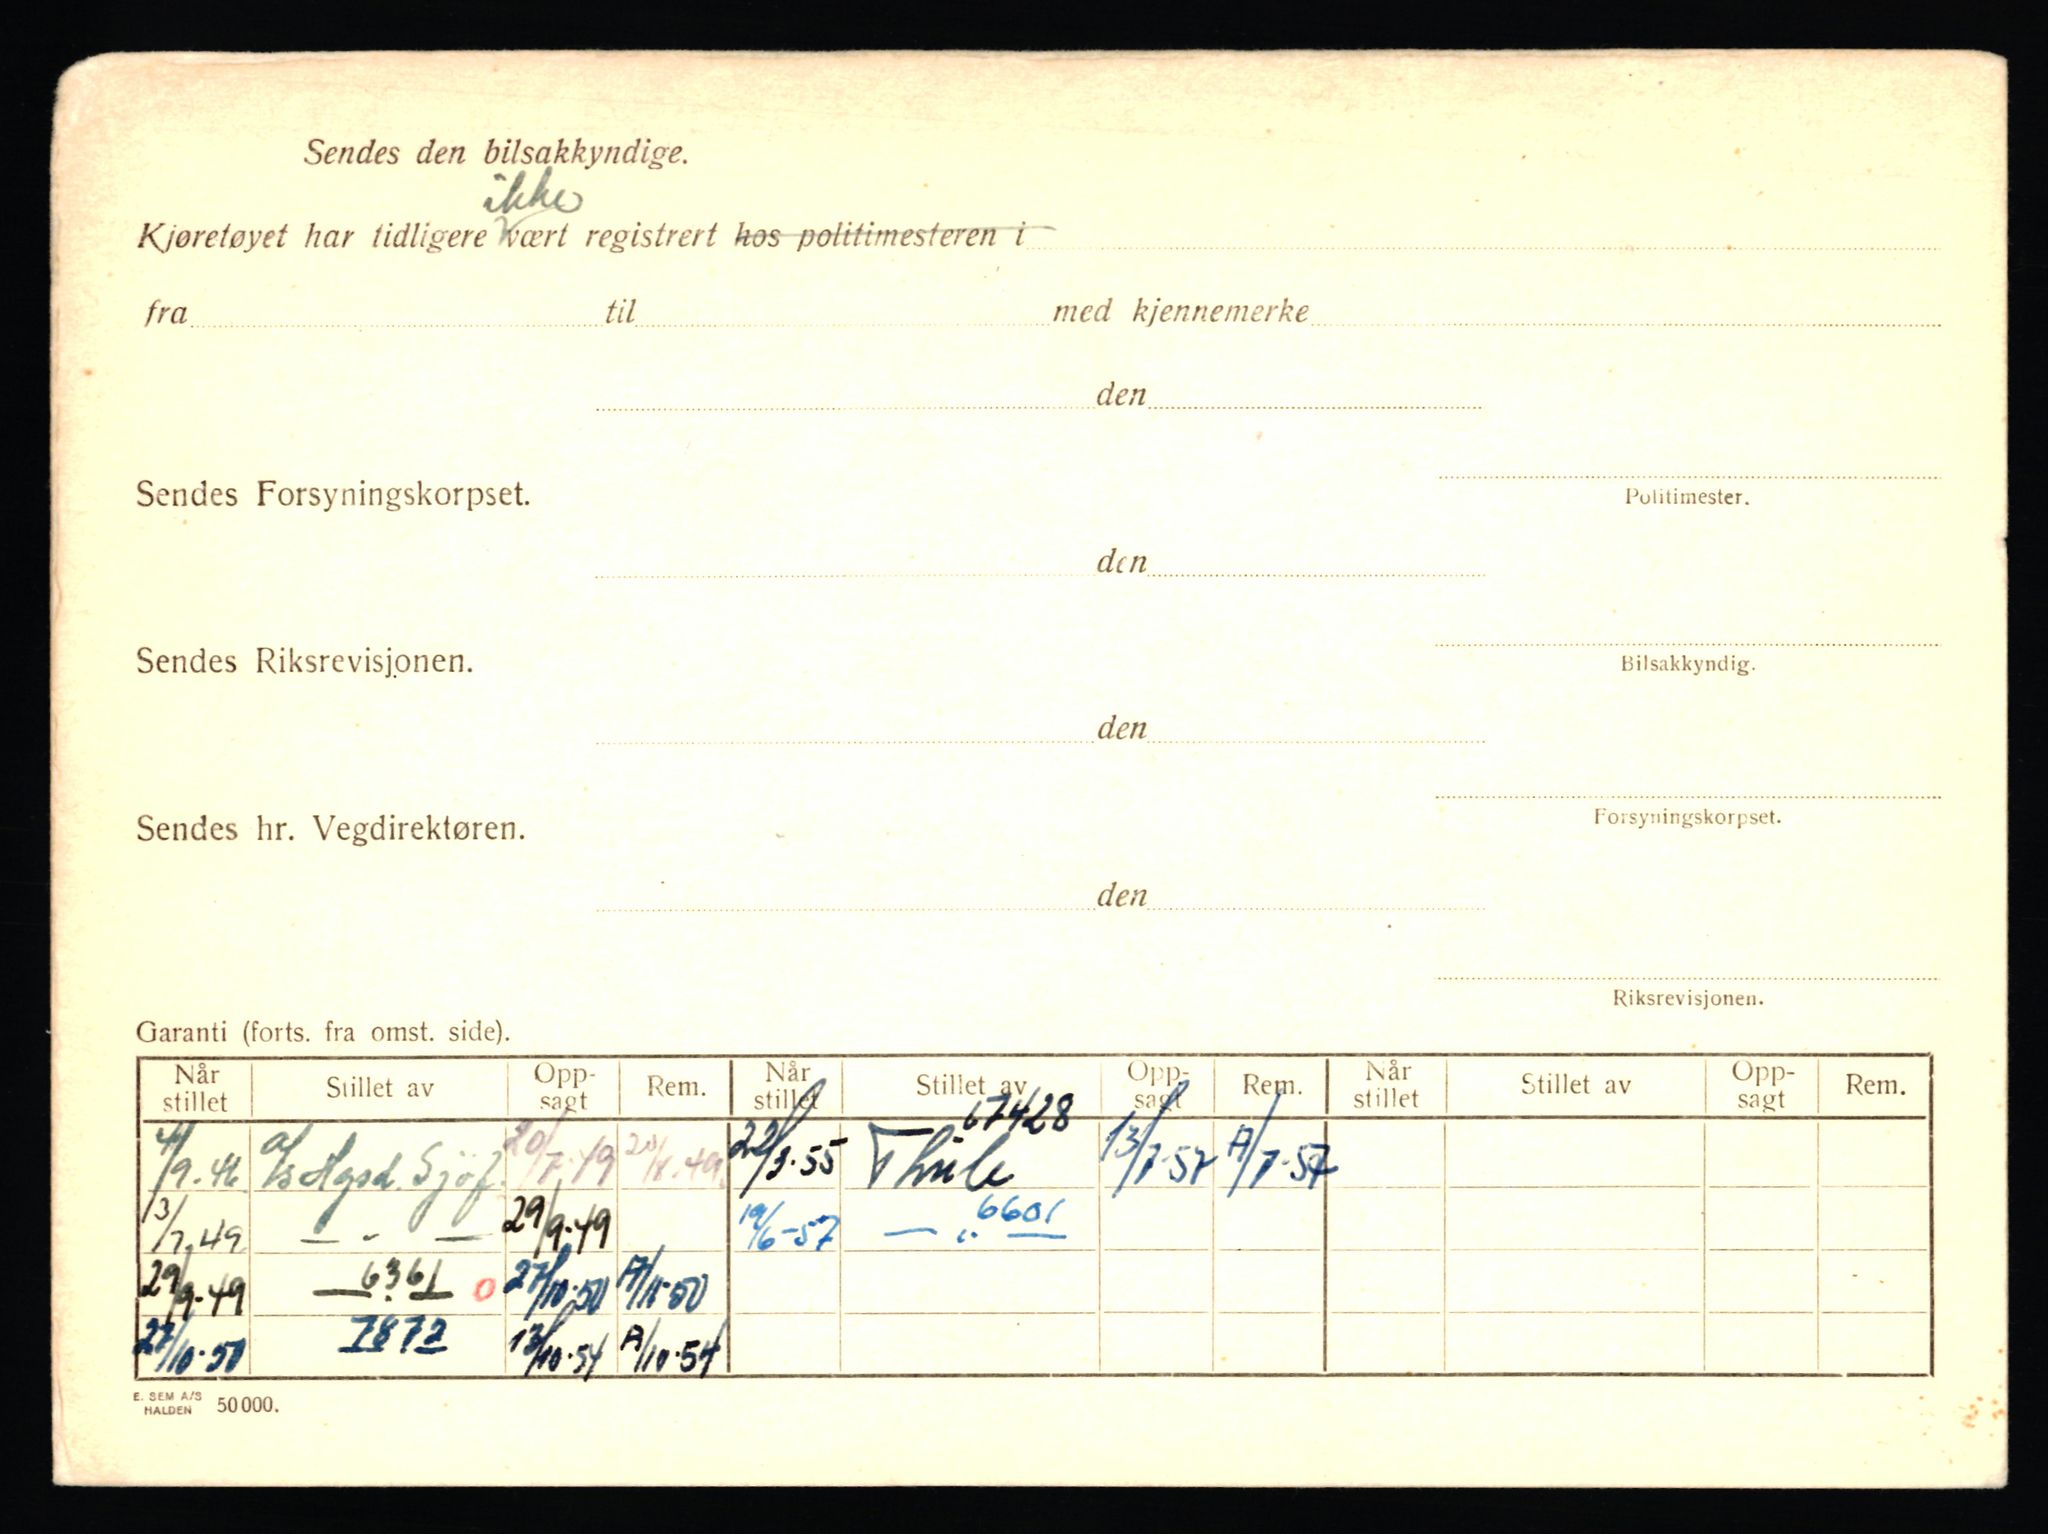 Sendes den bilsakkyndige.
ikke
Kjøretøyet har tidligere vært registrert hos politimesteren i
fra til med kjennemerke
den
Politimester.
Sendes Forsyningskorpset.
den
Bilsakkyndig.
Sendes Riksrevisjonen.
den
Forsyningskorpset.
Sendes hr. Vegdirektøren.
den
Riksrevisjonen.
Garanti (forts. fra omst. side).
Når stillet Stillet av Opp-sagt Rem. Når stillet Stillet av Opp-sagt Rem. Når stillet Stillet av Opp-sagt Rem.
67428
A/s Sjöf. 20/7.49 22/3.55 Thule 13/7-57 A/7-57
13/7.49 — „ — 29/9.49 19/6-57 — „ — 6601
29/9-49 6361 O 27/10.50 A/11-50
27/10.50 7872 13/10.54 A/10.54
E. SEM A/S
HALDEN 50000.